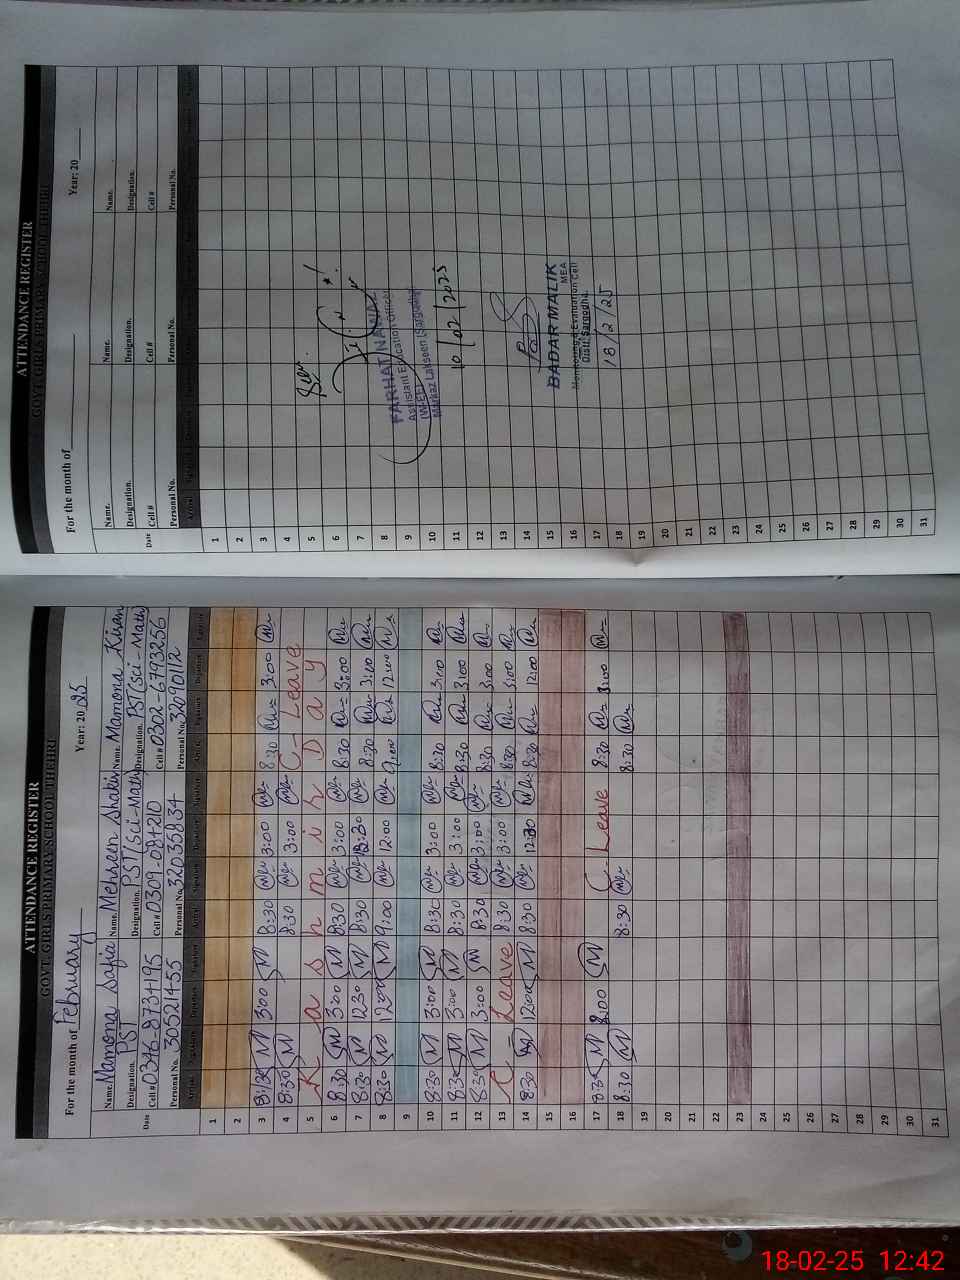 ATTENDANCE REGISTER
GOVT. GIRLS PRIMARY SCHOOL THEHRI
For the month of February Year: 20 25
Name. Mamona Safia Name. Mehreen Shakir Name. Mamona Kiran
Designation. PST Designation. PST (Sci-Math) Designation. PST (Sci-Math)
Cell # 0346-8734195 Cell # 0309-084210 Cell # 0302-6793256
Date Personal No. 30521455 Personal No. 32035834 Personal No. 32090112
Arrival Signature Departure Signature Arrival Signature Departure Signature Arrival Signature Departure Signature
1
2
3 8:30 M 3:00 M 8:30 3:00 8:30 3:00
4 8:30 M 8:30 3:00 C-Leave
5 Kashmir Day
6 8:30 M 3:00 M 8:30 3:00 8:30 3:00
7 8:30 M 12:30 M 8:30 12:30 8:30 3:00
8 8:30 M 12:00 M 9:00 12:00 9:00 12:00
9
10 8:30 M 3:00 M 8:30 3:00 8:30 3:00
11 8:30 M 3:00 M 8:30 3:00 8:30 3:00
12 8:30 M 3:00 M 8:30 3:00 8:30 3:00
13 C-Leave 8:30 3:00 8:30 3:00
14 8:30 M 12:00 M 8:30 12:30 8:30 12:00
15
16
17 8:30 M 8:00 M C-Leave 8:30 3:00
18 8:30 M 8:30 8:30
19
20
21
22
23
24
25
26
27
28
29
30
31
ATTENDANCE REGISTER
GOVT. GIRLS PRIMARY SCHOOL THEHRI
For the month of Year: 20
Name. Name. Name.
Designation. Designation. Designation.
Cell # Cell # Cell #
Date Personal No. Personal No. Personal No.
1
2
3
4
5
6
7
8
9
10
11
12
13
14
15
16
17
18
19
20
21
22
23
24
25
26
27
28
29
30
31
FARHAT NAWAZ
Assistant Education Officer
(W-EE)
Markaz Lakseen (Sargodha)
10/02/2025
BADAR MALIK
MEA
Monitoring & Evaluation Cell
Distt. Sargodha.
18/2/25
18-02-25 12:42